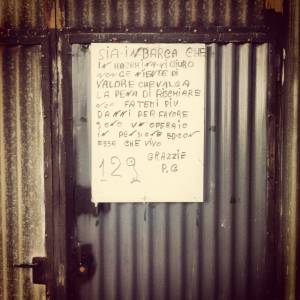 SIA IN BARCA CHE
IN MACCHINA VI GIURO
NON CE NIENTE DI
VALORE CHE VALGA
LA PENA DI RISCHIARE
NON FATEMI PIU
DANNI PER FAVORE
SONO UN OPERAIO
IN PENSIONE ED CON
ESSA CHE VIVO
GRAZZIE
129 P.G